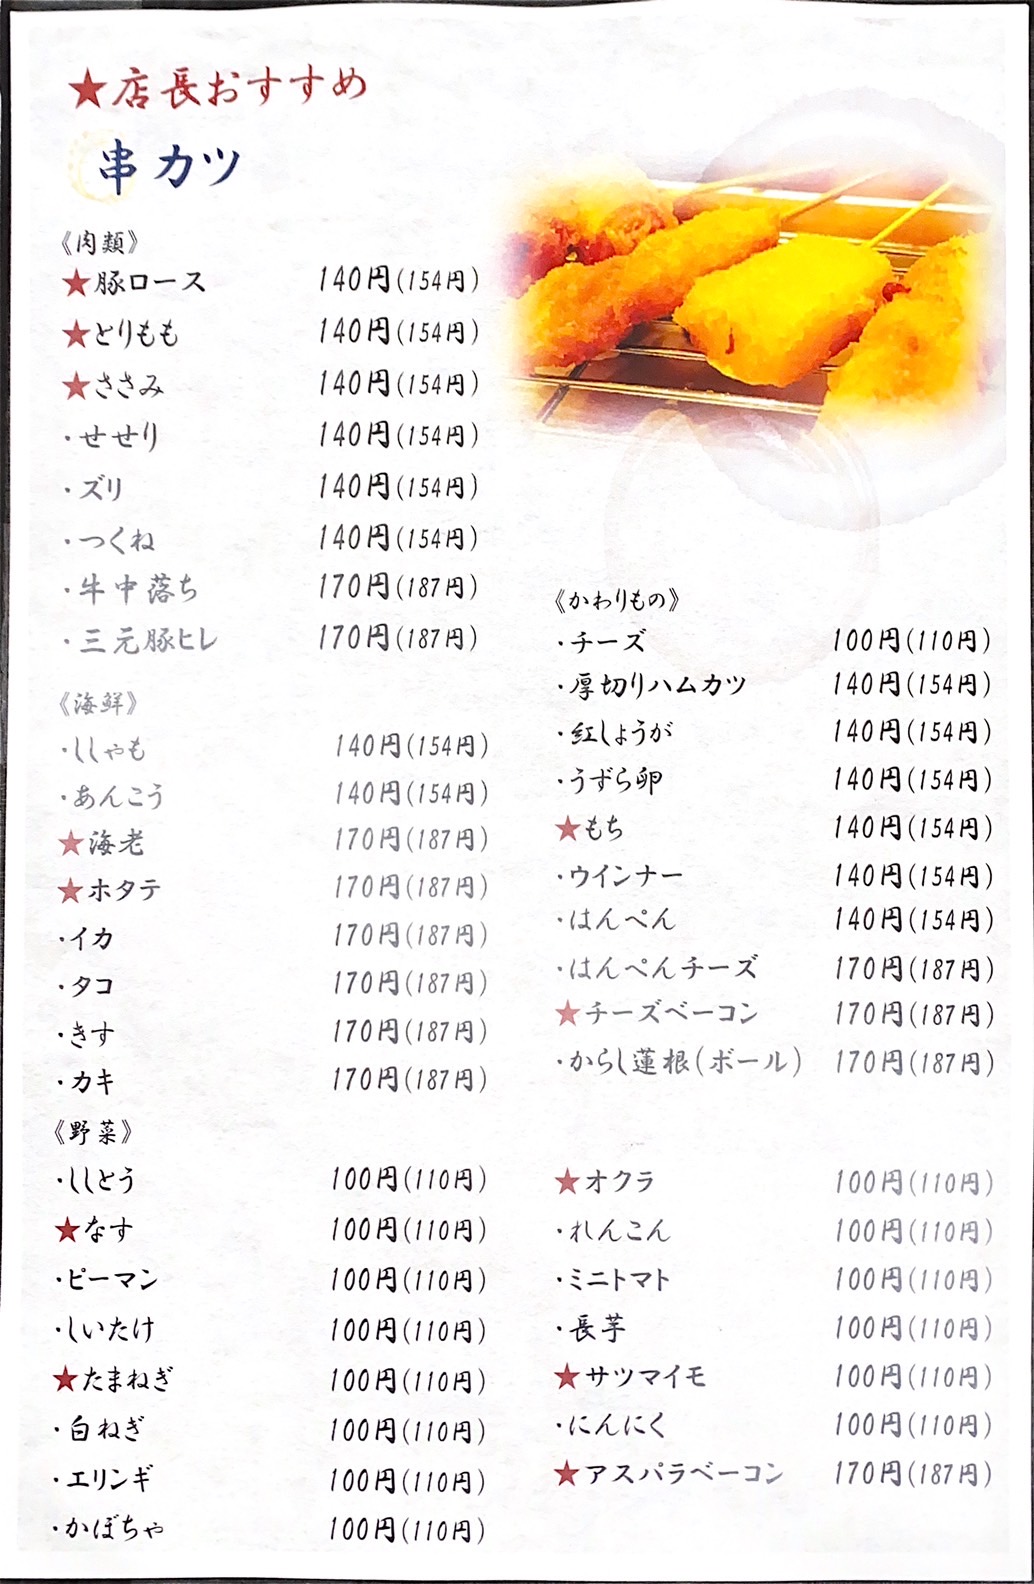 ★店長おすすめ
串カツ
《肉類》
★豚ロース 140円(154円)
★とりもも 140円(154円)
★ささみ 140円(154円)
・せせり 140円(154円)
・ズリ 140円(154円)
・つくね 140円(154円)
・牛中落ち 170円(187円)
・三元豚ヒレ 170円(187円)
《海鮮》
・ししゃも 140円(154円)
・あんこう 140円(154円)
★海老 170円(187円)
★ホタテ 170円(187円)
・イカ 170円(187円)
・タコ 170円(187円)
・きす 170円(187円)
・カキ 170円(187円)
《かわりもの》
・チーズ 100円(110円)
・厚切りハムカツ 140円(154円)
・紅しょうが 140円(154円)
・うずら卵 140円(154円)
★もち 140円(154円)
・ウインナー 140円(154円)
・はんぺん 140円(154円)
・はんぺんチーズ 170円(187円)
★チーズベーコン 170円(187円)
・からし蓮根(ボール) 170円(187円)
《野菜》
・ししとう 100円(110円)
★なす 100円(110円)
・ピーマン 100円(110円)
・しいたけ 100円(110円)
★たまねぎ 100円(110円)
・白ねぎ 100円(110円)
・エリンギ 100円(110円)
・かぼちゃ 100円(110円)
★オクラ 100円(110円)
・れんこん 100円(110円)
・ミニトマト 100円(110円)
・長芋 100円(110円)
★サツマイモ 100円(110円)
・にんにく 100円(110円)
★アスパラベーコン 170円(187円)